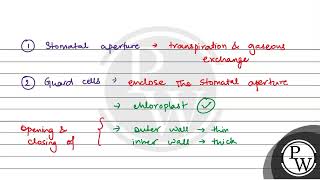 ① Stomatal aperture → transpiration & gaseous
exchange
② Guard cells → enclose the stomatal aperture
→ chloroplast ✓
Opening & → outer wall → thin
closing of inner wall → thick
PW